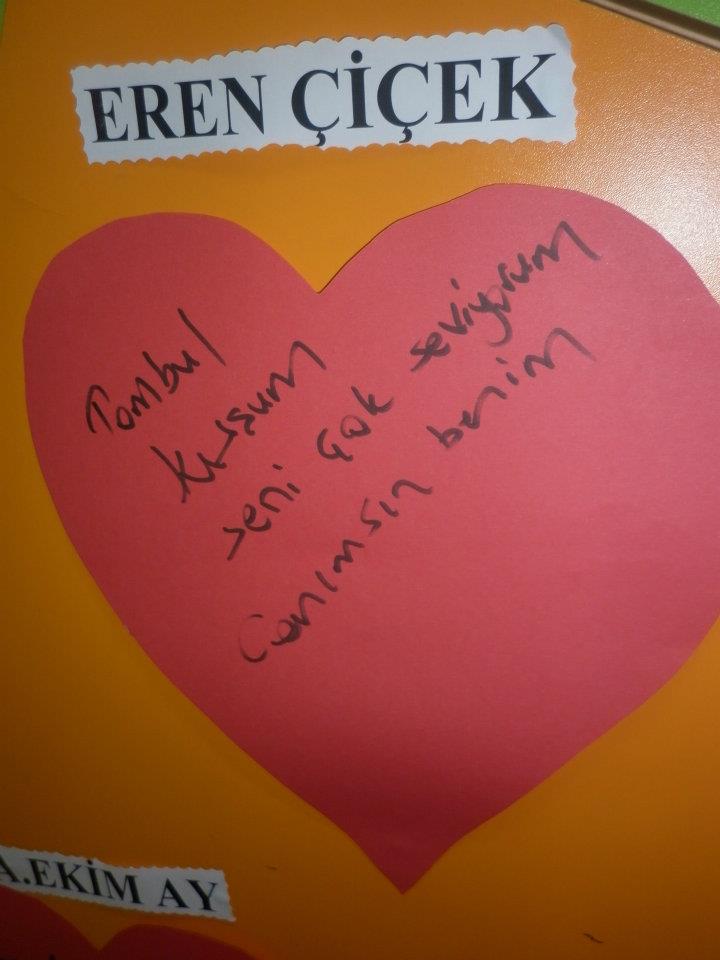 EREN ÇİÇEK
Tombul
kuşum
seni çok seviyorum
Canımsın benim
A.EKİM AY